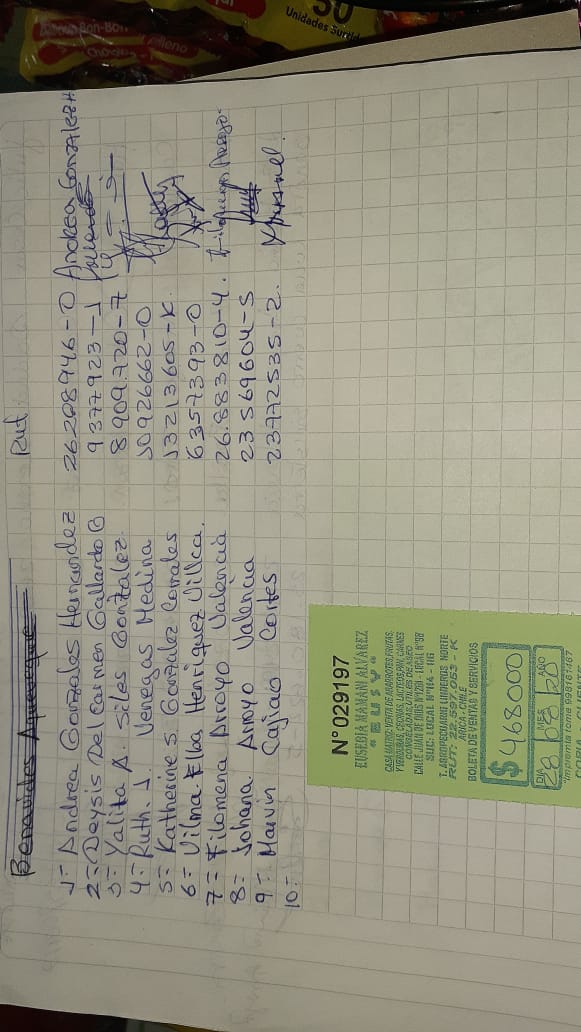 Bon-Bon
relleno
Chocolate
50
Unidades Surtid
Benavides Aqueveque
Rut
1= Andrea Gonzales Hernandez 26208946-0 Andrea Gonzalez H
2= Deysis De Carmen Gallardo G 9377923-1
3= Yalita A. Siles González 8909.720-7
4= Ruth. J. Venegas Medina 10926662-0
5= Katherine S. González Corrales 13213605-K.
6= Vilma Elba Henriquez Villca. 6357393-0
7= Filomena Arroyo Valencia 26.883810-4. Filomena Arroyo.
8= Johana Arroyo Valencia 23569604-5
9= Marvin Cajiao Cortes 23772535-2.
10=
N° 029197
EUSEBIA MAMANI ALVAREZ
"EUSY"
CASA MATRIZ: VENTA DE ABARROTES, FRUTAS,
Y VERDURAS, CECINAS, LACTEOS, PAN, CARNES
CORRIENTES, ARTICULOS DE ASEO
CALLE JUAN DE DIOS N°1201 - LOCAL N°98
SUC: LOCAL N°114 - 116
T. AGROPECUARIO LINDEROS NORTE
ARICA - CHILE
RUT: 22.597.053 - K
BOLETA DE VENTAS Y SERVICIOS
$ 468000
DIA MES AÑO
28 08 20
"Imprenta Tome 998161487
COPIA CLIENTE